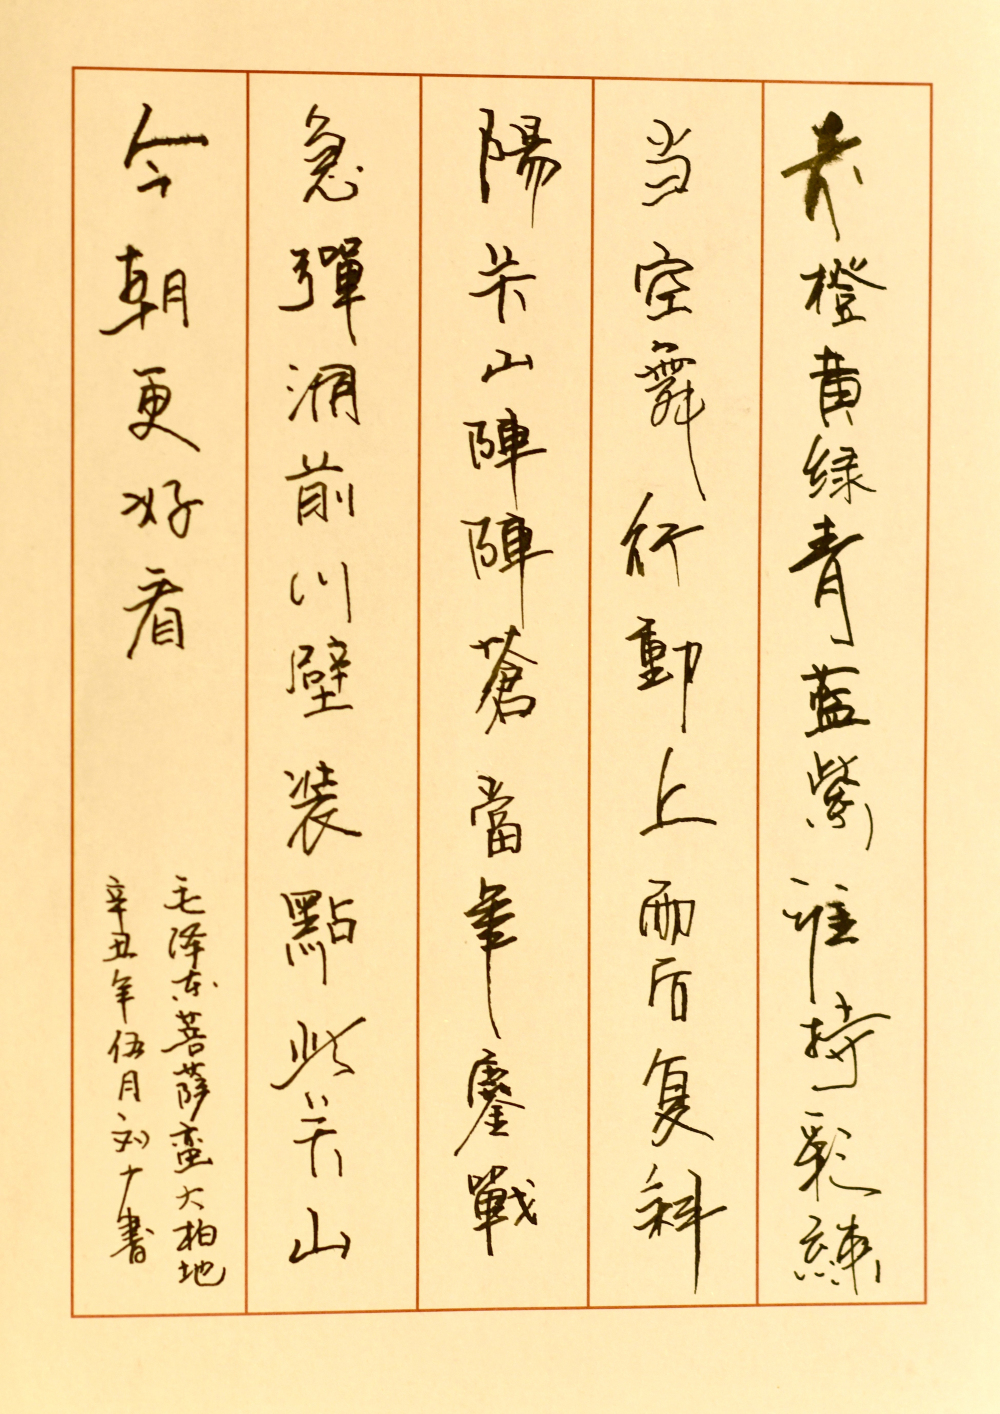 赤橙黄绿青蓝紫谁持彩練
当空舞行動上雨后复斜
陽关山陣陣蒼當年鏖戰
急彈洞前川壁装點此关山
今朝更好看
毛泽东菩萨蛮大柏地
辛丑年伍月刘書